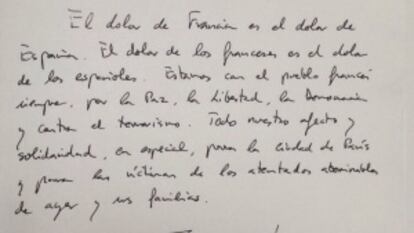 El dolor de Francia es el dolor de
España. El dolor de los franceses es el dolor
de los españoles. Estamos con el pueblo francés
siempre, por la Paz, la Libertad, la Democracia
y contra el terrorismo. Todo nuestro afecto y
solidaridad, en especial, para la ciudad de París
y para las víctimas de los atentados abominables
de ayer y sus familias.